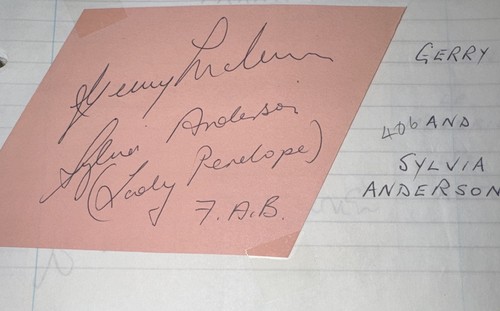 Gerry Anderson
Sylvia Anderson
(Lady Penelope)
F.A.B.
GERRY
406 AND
SYLVIA
ANDERSON